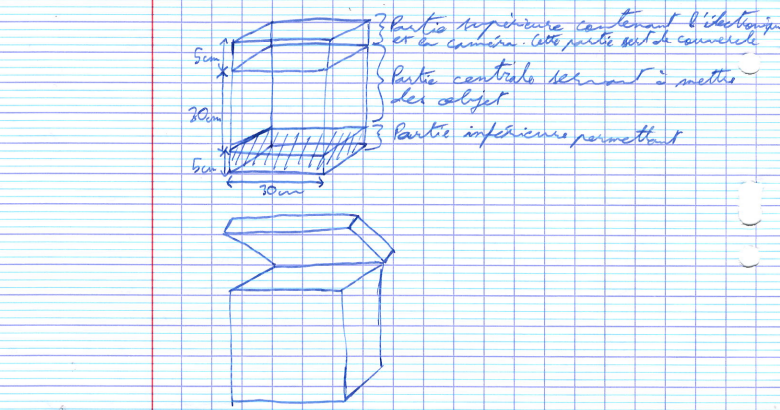 Partie supérieure contenant l'électronique
et la caméra. Cette partie sert de couvercle
5cm
Partie centrale servant à mettre
des objet
30cm
Partie inférieure permettant
5cm
30cm